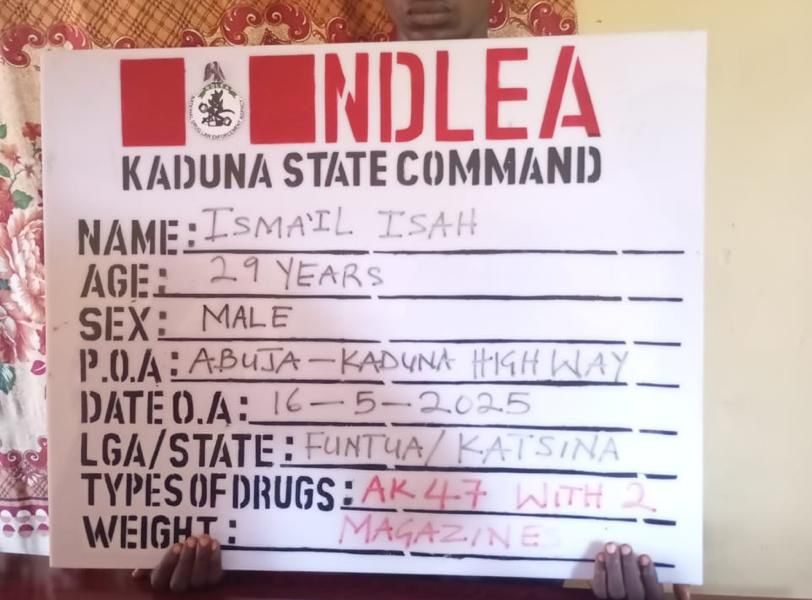 NDLEA
KADUNA STATE COMMAND
NAME: ISMA'IL ISAH
AGE: 29 YEARS
SEX: MALE
P.O.A: ABUJA - KADUNA HIGHWAY
DATE O.A: 16-5-2025
LGA/STATE: FUNTUA/KATSINA
TYPES OF DRUGS: AK47 WITH 2
WEIGHT: MAGAZINE